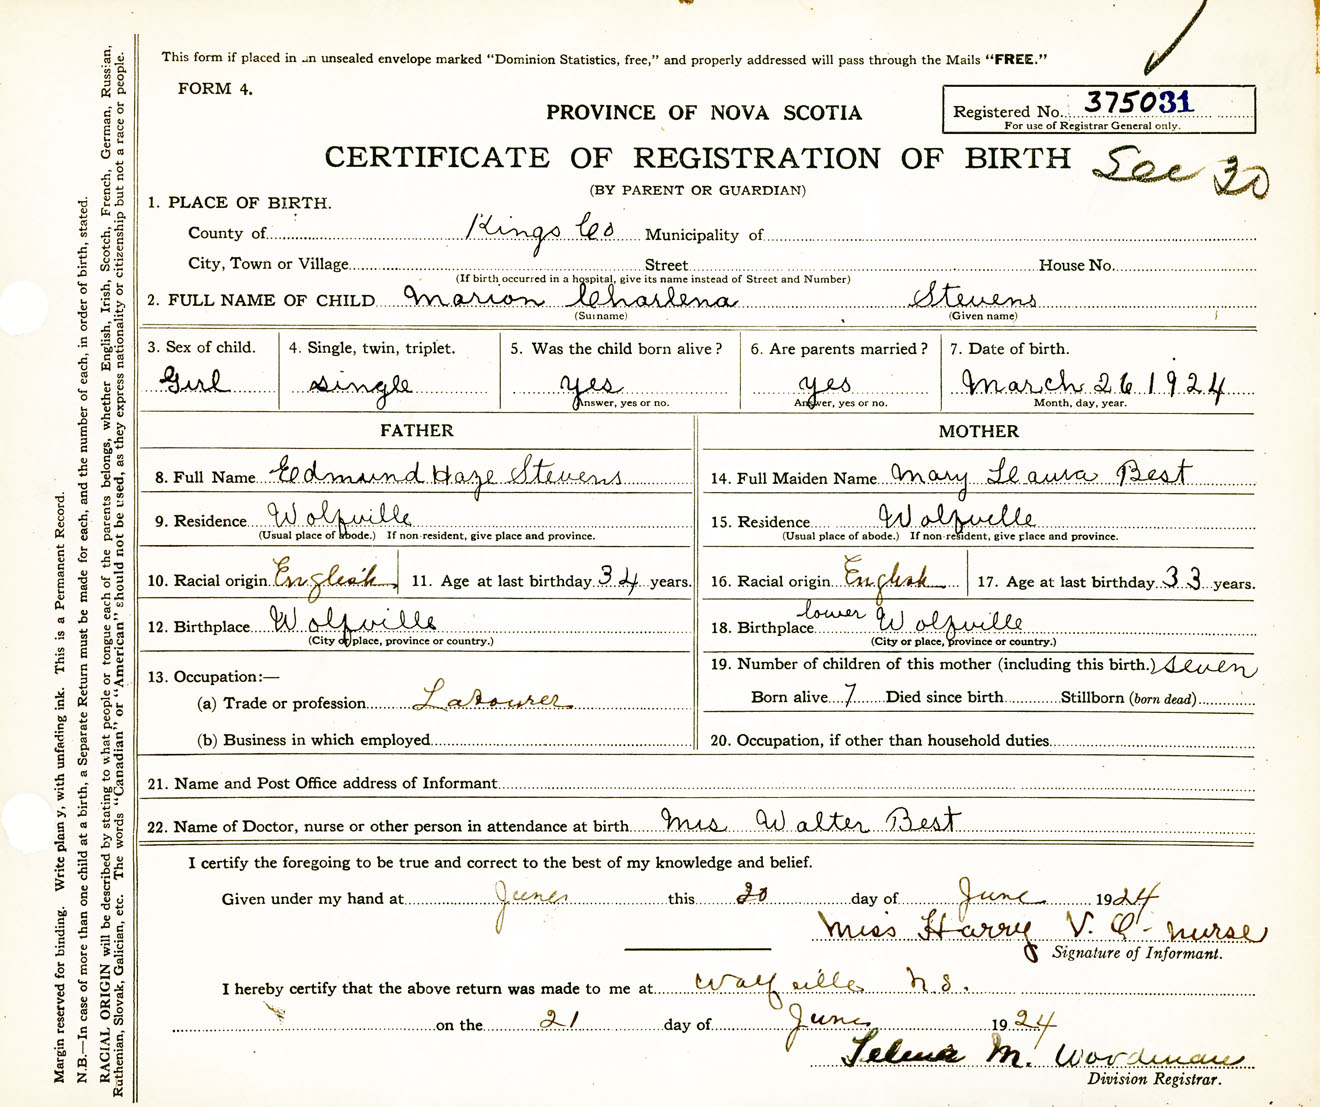 This form if placed in an unsealed envelope marked "Dominion Statistics, free," and properly addressed will pass through the Mails "FREE."
FORM 4.
PROVINCE OF NOVA SCOTIA
Registered No. 375031
For use of Registrar General only.
CERTIFICATE OF REGISTRATION OF BIRTH Sec 30
(BY PARENT OR GUARDIAN)
1. PLACE OF BIRTH.
County of Kings Co Municipality of
City, Town or Village Street House No.
(If birth occurred in a hospital, give its name instead of Street and Number)
2. FULL NAME OF CHILD Marion Charlena Stevens
(Surname) (Given name)
3. Sex of child. 4. Single, twin, triplet. 5. Was the child born alive? 6. Are parents married? 7. Date of birth.
Girl single yes yes March 26 1924
Answer, yes or no. Answer, yes or no. Month, day, year.
FATHER MOTHER
8. Full Name Edmund Haze Stevens 14. Full Maiden Name Mary Leaura Best
9. Residence Wolfville 15. Residence Wolfville
(Usual place of abode.) If non-resident, give place and province. (Usual place of abode.) If non-resident, give place and province.
10. Racial origin English 11. Age at last birthday 34 years. 16. Racial origin English 17. Age at last birthday 33 years.
12. Birthplace Wolfville 18. Birthplace lower Wolfville
(City or place, province or country.) (City or place, province or country.)
13. Occupation:— 19. Number of children of this mother (including this birth.) seven
(a) Trade or profession Labourer Born alive 7 Died since birth Stillborn (born dead)
(b) Business in which employed 20. Occupation, if other than household duties
21. Name and Post Office address of Informant
22. Name of Doctor, nurse or other person in attendance at birth Mrs Walter Best
I certify the foregoing to be true and correct to the best of my knowledge and belief.
Given under my hand at June this 20 day of June 1924
Miss Harry V. O. nurse
Signature of Informant.
I hereby certify that the above return was made to me at Wolfville N.S.
on the 21 day of June 1924
Selena M. Woodman
Division Registrar.
Margin reserved for binding. Write plainly, with unfading ink. This is a Permanent Record.
N.B.—In case of more than one child at a birth, a Separate Return must be made for each, and the number of each, in order of birth, stated.
RACIAL ORIGIN will be described by stating to what people or tongue each of the parents belongs, whether English, Irish, Scotch, French, German, Russian,
Ruthenian, Slovak, Galician, etc. The words "Canadian" or "American" should not be used, as they express nationality or citizenship but not a race or people.